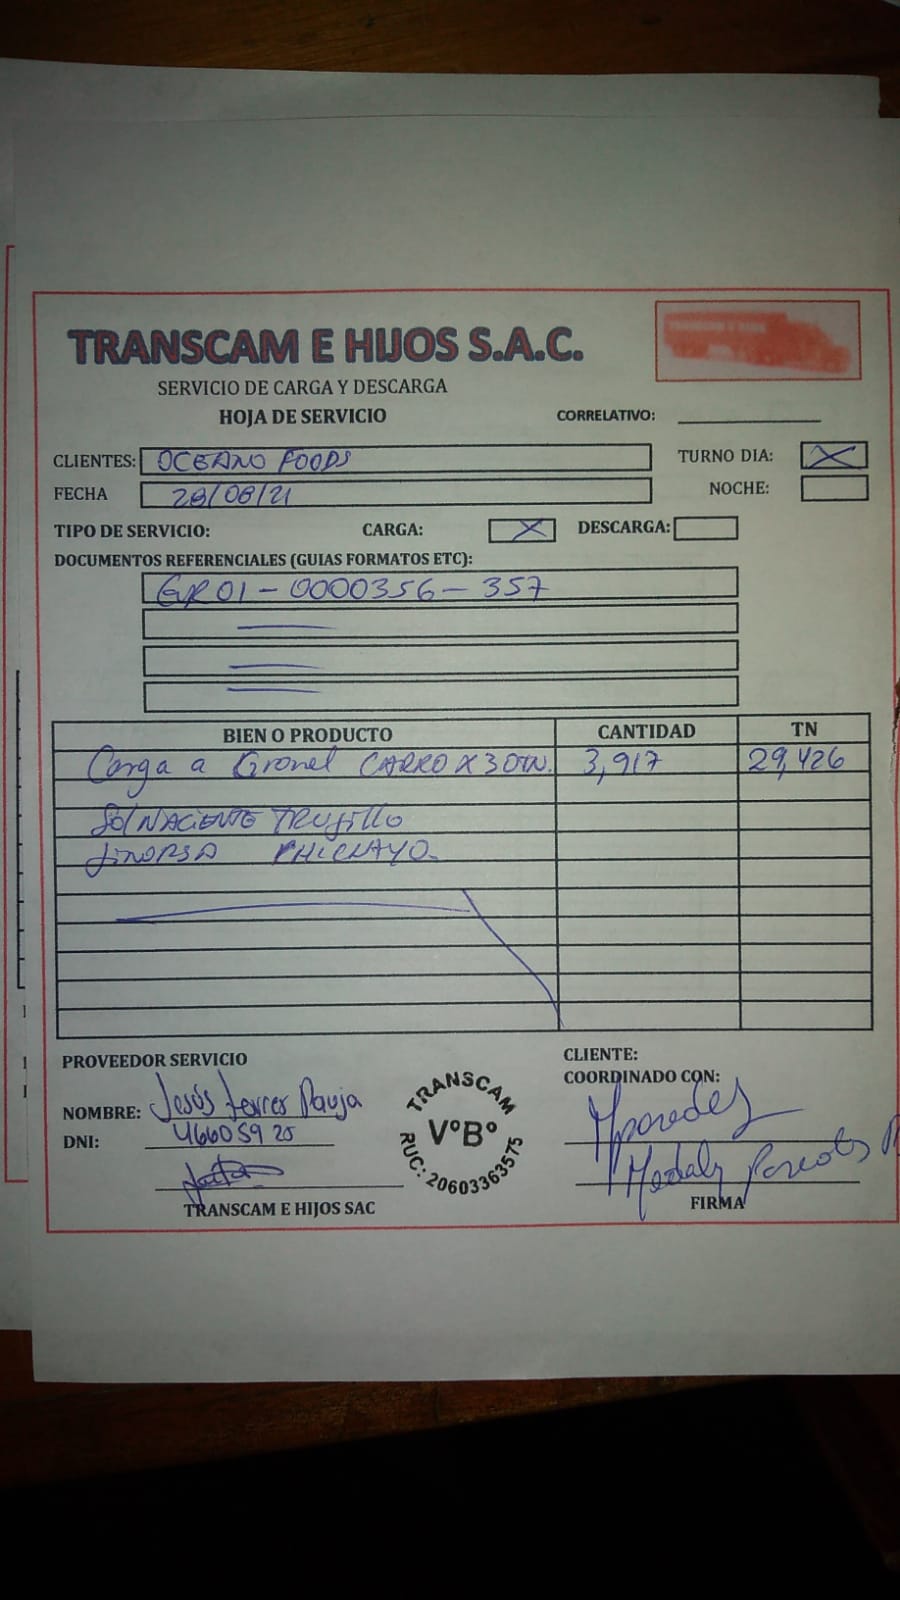 TRANSCAM E HIJOS S.A.C.
SERVICIO DE CARGA Y DESCARGA
HOJA DE SERVICIO
CORRELATIVO:
CLIENTES: OCEANO FOODS
TURNO DIA: X
FECHA 28/08/21
NOCHE:
TIPO DE SERVICIO: CARGA: X DESCARGA:
DOCUMENTOS REFERENCIALES (GUIAS FORMATOS ETC):
GR01-0000356-357
BIEN O PRODUCTO CANTIDAD TN
Carga a Gronel CARRO X 30TN. 3,917 29,426
Sol NACIENTE TRUJILLO
PROVEEDOR SERVICIO
CLIENTE:
COORDINADO CON:
NOMBRE: Jesús
DNI: 46605925
TRANSCAM
V°B°
RUC: 20603363575
TRANSCAM E HIJOS SAC
FIRMA